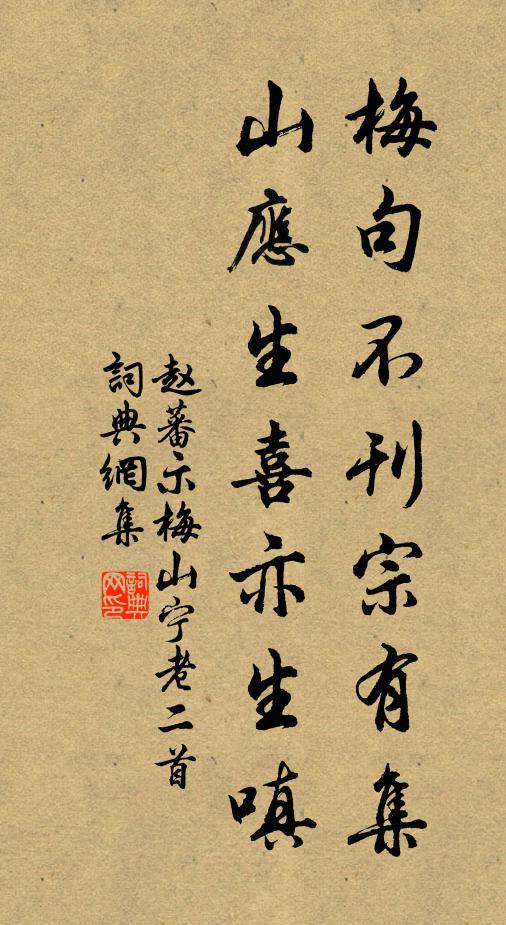 梅句不刊宗有集
山應生喜亦生嗔
赵蕃示梅山宁老二首
詞典網集
詞典
网印